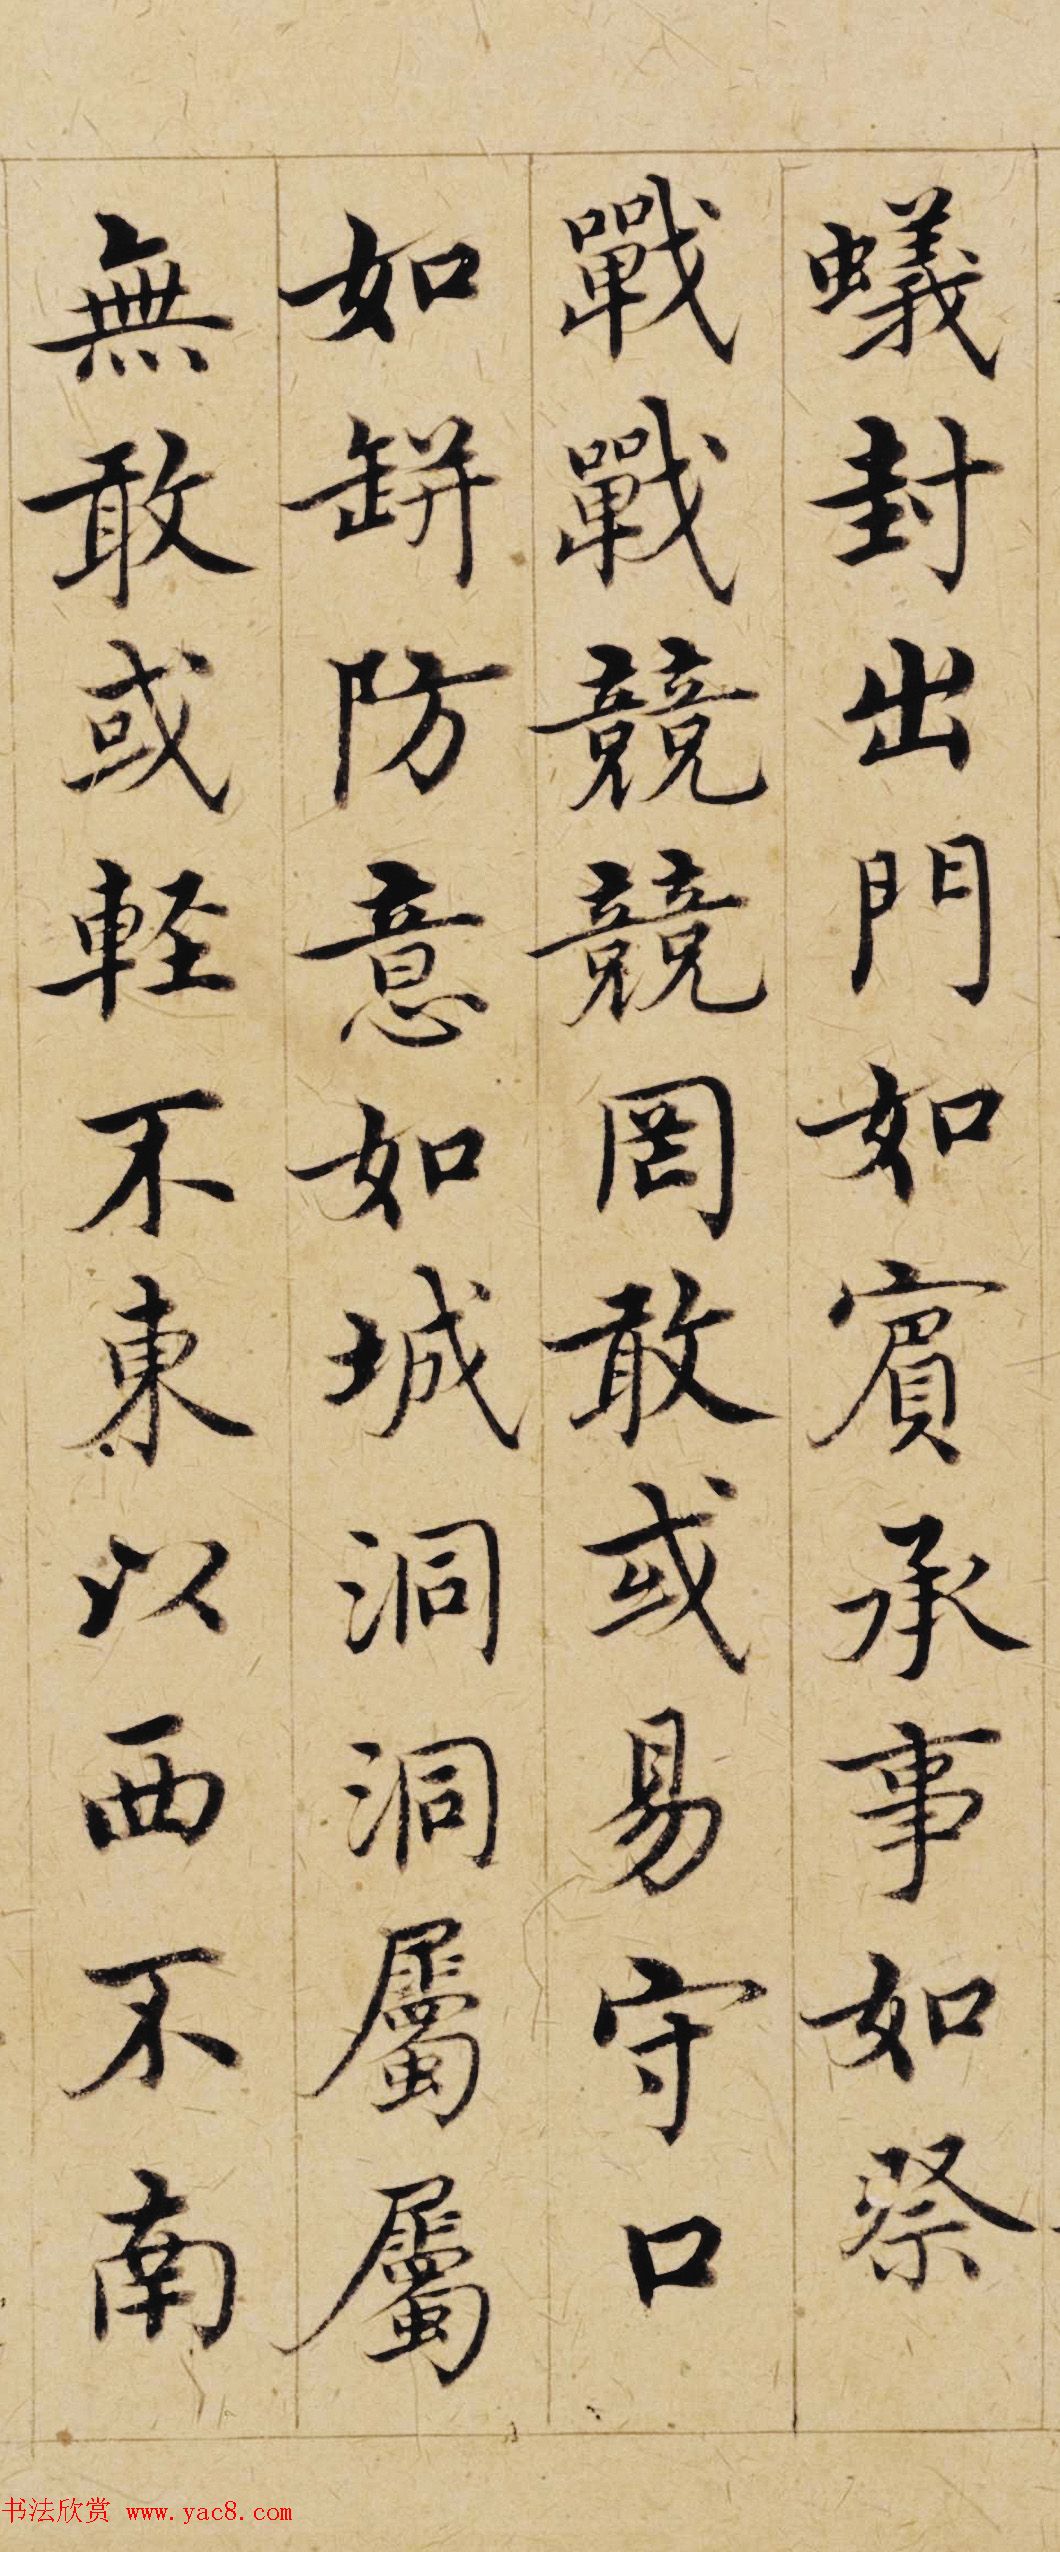 蟻封出門如賓承事如祭
戰戰兢兢罔敢或易守口
如缾防意如城洞洞屬屬
無敢或軽不東以西不南
书法欣赏 www.yac8.com